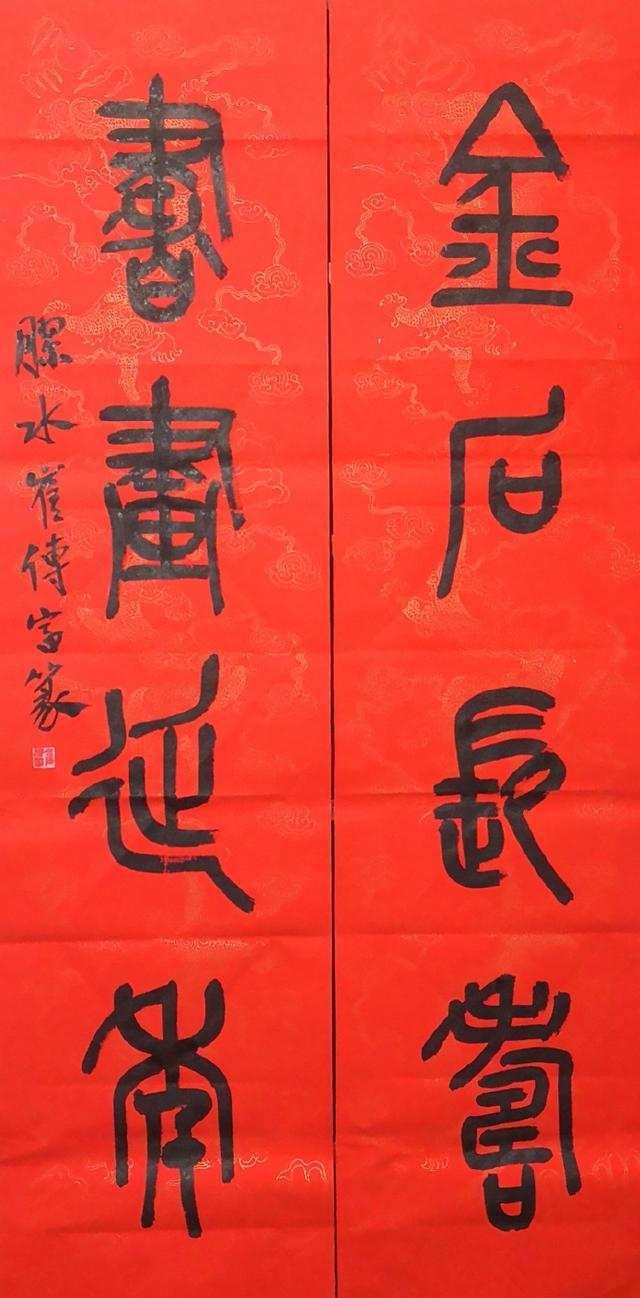 金石長壽
書畫延年
膠水崔傳富篆